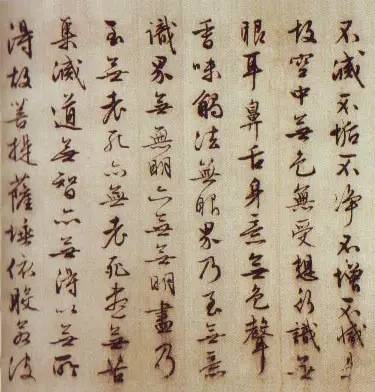 不滅不垢不净不增不減是
故空中無色無受想行識無
眼耳鼻舌身意無色聲
香味觸法無眼界乃至無意
識界無無明亦無無明盡乃
至無老死亦無老死盡無苦
集滅道無智亦無得以無所
得故菩提薩埵依般若波